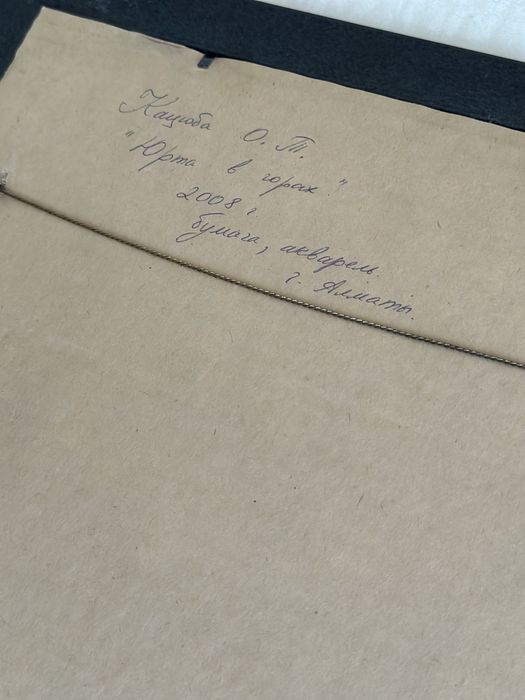 Кацюба О. Т.
"Юрта в горах."
2008 г.
бумага, акварель
г. Алматы.